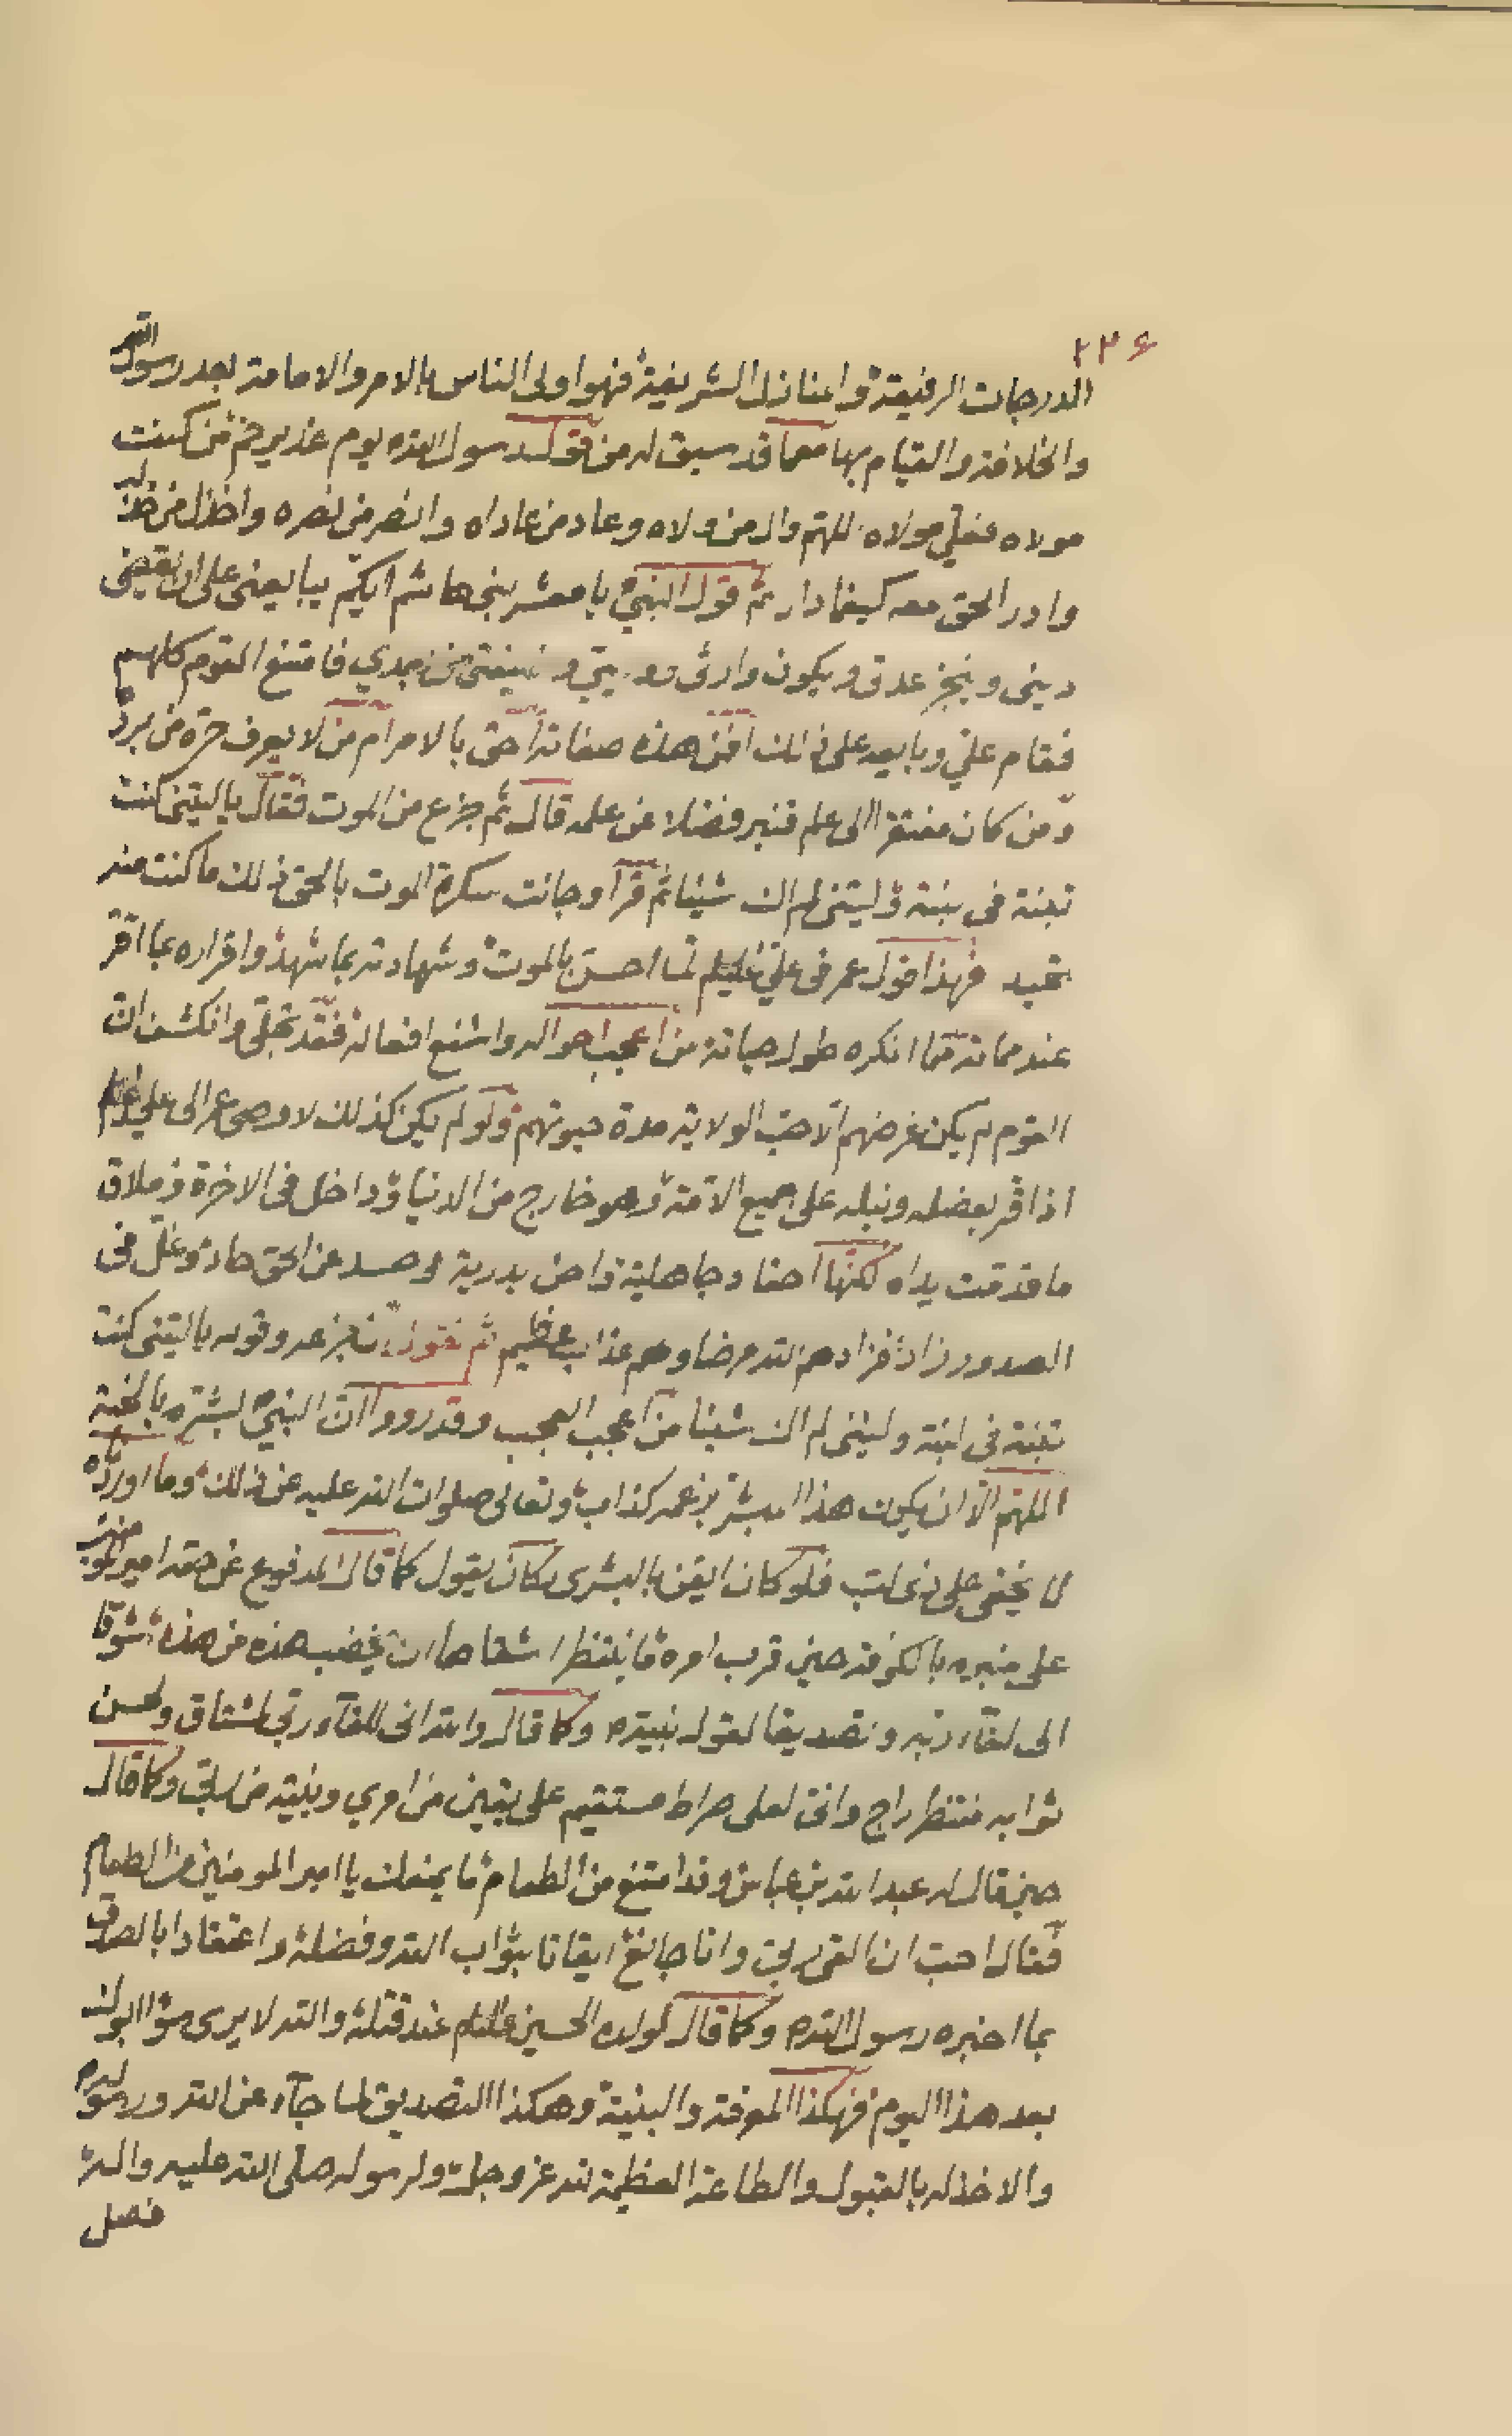 ٢٣۶
الدرجات الرفيعة والمنازل الشريفة فهو اولى الناس بالامر والامامة بعد رسول الله
والخلافة والقيام بها معما قد سبق له من قول رسول الله ص يوم غدير خم من كنت
مولاه فعلي مولاه اللهم وال من والاه وعاد من عاداه وانصر من نصره واخذل من خذله
وادر الحق معه كيفما دار ثم قول النبي يا معشر بني هاشم ايكم يبايعني على ان يقضي
ديني وينجز عدتي ويكون وارثي و من بعدي فامتنع القوم كلهم
فقام علي وبايعه على ذلك افمن هذه صفاته احق بالامر ام من لا يعرف حره من برده
ومن كان مفتقرا الى علم قنبر فضلا عن علمه قال ثم جزع من الموت فقال يا ليتني كنت
تبنة في لبنة وليتني لم اك شيئا ثم قرا وجائت سكرة الموت بالحق ذلك ما كنت منه
تحيد فهذا قول عمر في علي عليلم لما احس بالموت وشهادته بما شهد واقراره بما اقر
عند مماته مما انكره طول حياته من اعجب احواله واشنع افعاله فقد تجلى وانكشف ان
القوم لم يكن غرضهم الا حب الولاية مدة حيوتهم ولو لم يكن كذلك لاوصى عمر الى علي عليلم
اذ اقر بفضله ونبله على جميع الامة وهو خارج من الدنيا وداخل في الاخرة وملاق
ما قدمت يداه لكنها احقاد جاهلية واحن بدرية وحسد عن الحق حاد وغل في
الصدور زاد فزادهم الله مرضا ولهم عذاب عظيم ثم نقول ان جزعه وقوله يا ليتني كنت
تبنة في لبنة وليتني لم اك شيئا من اعجب العجب وقد رووا ان النبي ص بشره بالجنة
اللهم الا ان يكون هذا المبشر بزعمه كذاب وتعالى صلوات الله عليه عن ذلك وما اورده
لا يخفى على ذي لب فلو كان ايقن بالبشرى لكان يقول كما قال المدفوع عن حقه امير المومنين
على منبره بالكوفة حين قرب امره ما ينتظر اشقاها ان يخضب هذه من هذه شوقا
الى لقاء ربه وتصديقا لقول نبيه ص وكما قال والله اني للقاء ربي لمشتاق ولحسن
ثوابه منتظر راج واني لعلى صراط مستقيم على يقين من امري وبينة من ربي وكما قال
حين قال له عبد الله بن عباس وقد امتنع من الطعام ما يمنعك يا امير المومنين من الطعام
فقال احب ان القى ربي وانا جائع ايقانا بثواب الله وفضله واعتقادا بالصدق
بما اخبره رسول الله ص وكما قال لولده الحسين عليلم عند قتله والله لا يرى سوا ابوك
بعد هذا اليوم فهكذا المعرفة والبينة وهكذا التصديق لما جاء عن الله ورسوله ص
والاخذ له بالقبول والطاعة العظيمة لله عز وجل ولرسوله صلى الله عليه واله
فصل